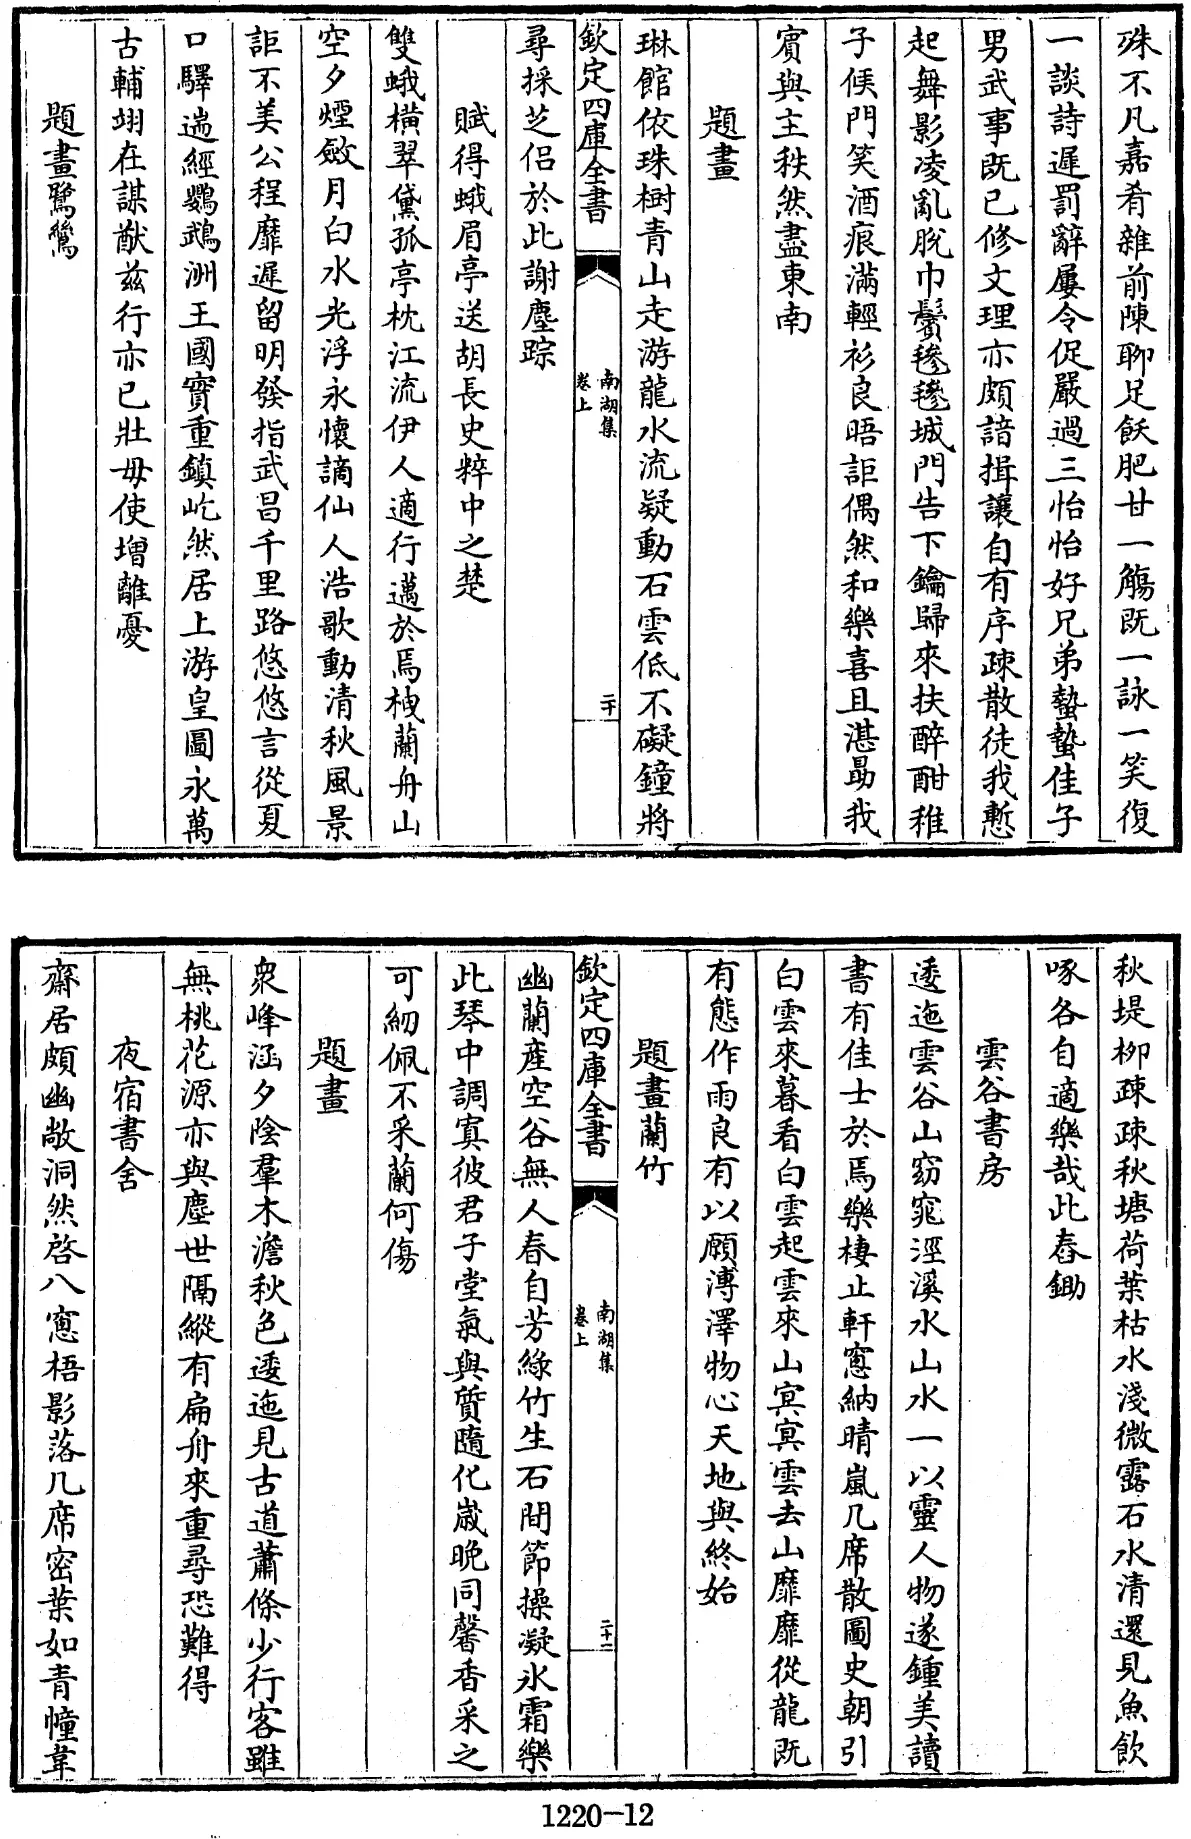 殊不凡嘉肴雜前陳聊足飫肥甘一觴既一詠一笑復
一談詩遲罰辭屢令促嚴過三怡怡好兄弟蟄蟄佳子
男武事既已修文理亦頗諳揖讓自有序疎散徒我慙
起舞影凌亂脫巾鬢毿毿城門告下鑰歸來扶醉酣稚
子候門笑酒痕滿輕衫良晤詎偶然和樂喜且湛勗我
賓與主秩然盡東南
題畫
琳館依珠樹青山走游龍水流疑動石雲低不礙鐘將
欽定四庫全書
南湖集
卷上
二十
尋採芝侶於此謝塵踪
賦得蛾眉亭送胡長史粹中之楚
雙蛾橫翠黛孤亭枕江流伊人適行邁於焉栧蘭舟山
空夕煙斂月白水光浮永懷謫仙人浩歌動清秋風景
詎不美公程靡遲留明發指武昌千里路悠悠言從夏
口驛遄經鸚鵡洲王國實重鎮屹然居上游皇圖永萬
古輔翊在謀猷兹行亦已壯毋使增離憂
題畫鷺鷥
秋堤柳疎疎秋塘荷葉枯水淺微露石水清還見魚飲
啄各自適樂哉此舂鋤
雲谷書房
逶迤雲谷山窈窕涇溪水山水一以靈人物遂鍾美讀
書有佳士於焉樂棲止軒窻納晴嵐几席散圖史朝引
白雲來暮看白雲起雲來山冥冥雲去山靡靡從龍既
有態作雨良有以願溥澤物心天地與終始
題畫蘭竹
欽定四庫全書
南湖集
卷上
二十一
幽蘭產空谷無人春自芳綠竹生石間節操凝氷霜樂
此琴中調寘彼君子堂氣與質隨化歲晚同馨香采之
可紉佩不采蘭何傷
題畫
衆峰涵夕陰羣木澹秋色逶迤見古道蕭條少行客雖
無桃花源亦與塵世隔縱有扁舟來重尋恐難得
夜宿書舍
齋居頗幽敞洞然啓八窻梧影落几席密葉如青幢韋
1220-12